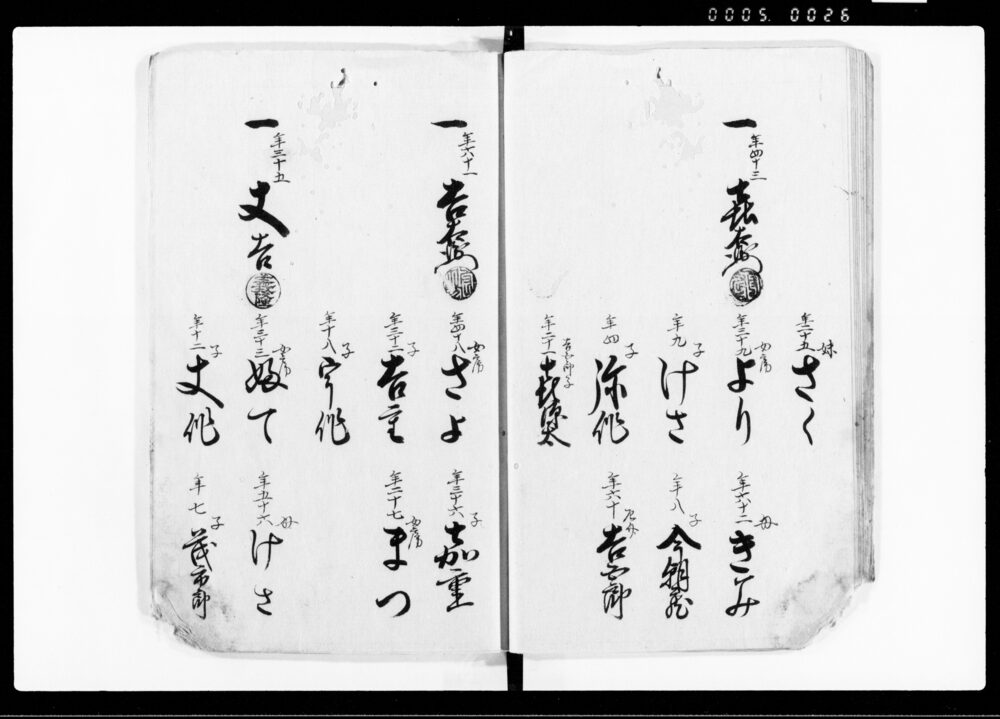 0005. 0026
妹
年二十五
さく
一
年四十三
喜左衛門
女房
年三十九
より
母
年六十二
きよみ
子
年九
けさ
子
年八
今朝蔵
子
年四
弥作
年六十
吉郎
年二十一
太
一
年六十一
吉左衛門
女房
年四十八
さよ
子
年三十六
嘉重
子
年三十二
吉重
女房
年二十七
まつ
子
年十八
宇作
一
年三十五
丈吉
女房
年三十三
て
母
年五十六
けさ
子
年十二
丈作
子
年七
茂市郎